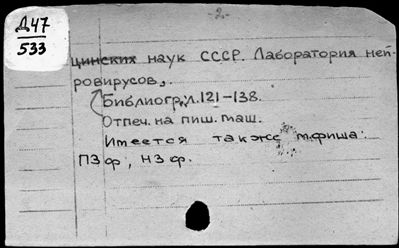 Д47
533
-2-
цинских наук СССР. Лаборатория ней-
ровирусов.
Библиогр., л.121-138.
Отпеч. на пиш. маш.
Имеется также м.фиша:
ПЗФ, НЗФ.